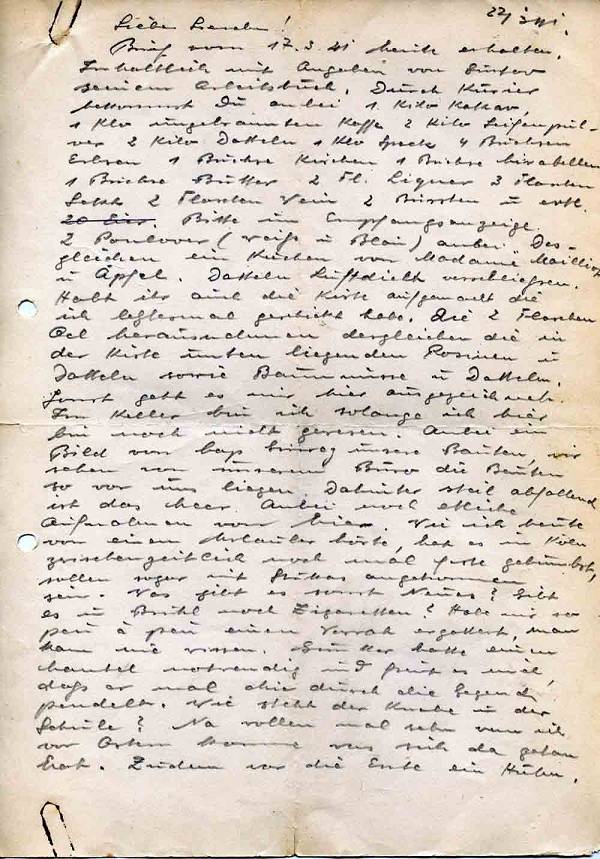 22/3 41.
Liebe Lieschen!
Brief vom 17.3.41 heute erhalten.
Inhaltlich mit Angaben von Gustav
seinem Arbeitsbuch. Durch Kurier
bekommst Du anbei 1 Kilo Kakao,
1 Klo ungebrannten Kaffe 2 Kilo Seifenpul-
ver 2 Kilo Datteln 1 Klo Speck 4 Büchsen
Erbsen 1 Büchse Kirschen 1 Büchse Mirabellen
1 Büchse Butter 2 Fl. Liquer 3 Flaschen
Sekt 2 Flaschen Wein 2 Bürsten u evtl.
20 Eier. Bitte um Empfangsanzeige.
2 Poulover (weiß u Blau) anbei. Des-
gleichen ein Kuchen von Madame
u Äpfel. Datteln Luftdicht verschließen.
Habt ihr auch die Kiste aufgemacht die
ich letztesmal geschickt habe. Die 2 Flaschen
Oel herausnehmen dergleichen die in
der Kiste unten liegenden Rosinen u
Datteln sowie Baumnüsse u Datteln.
Sonst geht es mir hier ausgezeichnet.
Im Keller bin ich solange ich hier
bin noch nicht gewesen. Anbei ein
Bild von unsere Bauten, wir
sehen von unserem Büro die Bauten
so vor uns liegen. Dahinter steil abfallend
ist das Meer. Anbei noch etliche
Aufnahmen von hier. Wie ich heute
von einem Urlauber hörte, hat es in Köln
zwischenzeitlich noch mal feste gebumbst,
sollen sogar mit Stukas angekommen
sein. Was gibt es sonst Neues? Gibt
es in Brühl noch Zigaretten? Habe mir so
peu à peu einen Vorrat ergattert, man
kann nie wissen. Günther hatte einen
Mantel notwendig und freut es mich,
daß er mal chic durch die Gegend
pendelt. Wie steht der Knabe in der
Schule? Na wollen mal sehn wenn ich
vor Ostern komme was sich da getan
hat. Zudem vor die Ente ein Huhn.